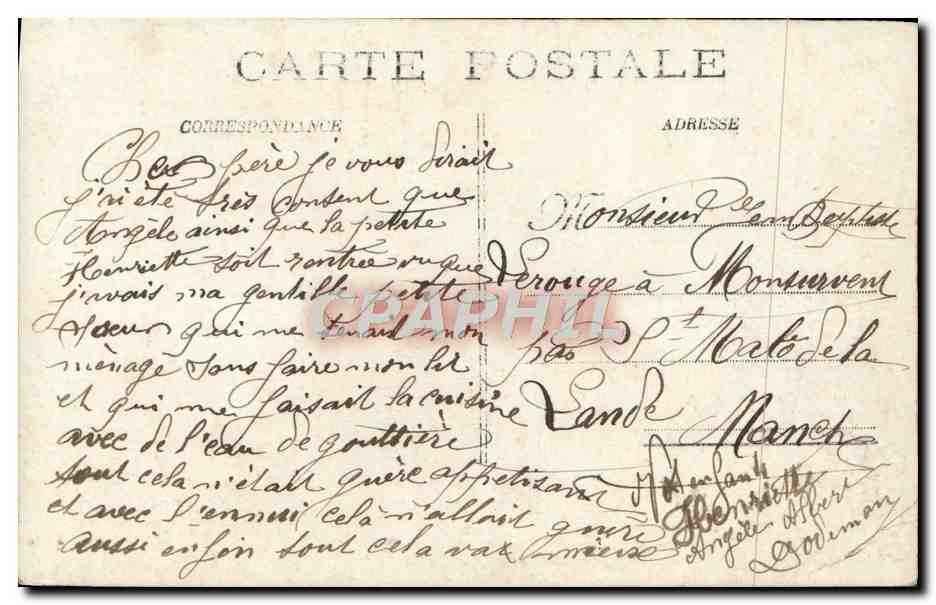 CARTE POSTALE
CORRESPONDANCE
ADRESSE
Cher père je vous dirait
j'ai été très content que
Angèle ainsi que la petite
Henriette soit rentrée vu que
j'avais ma gentille petite
soeur qui me tenait mon
ménage sans faire mon lit
et qui me faisait la cuisine
avec de l'eau de gouttière
tout cela n'était guère appetisant
et avec l'ennui celà n'allait guère
aussi enfin tout cela vax mieux
Monsieur Jean Baptiste
Lerouge à Monsurvent
par St Malô de la
Lande
Manche
Vos enfants
Henriette
Angèle Albert
Godiman
CPAPHIL